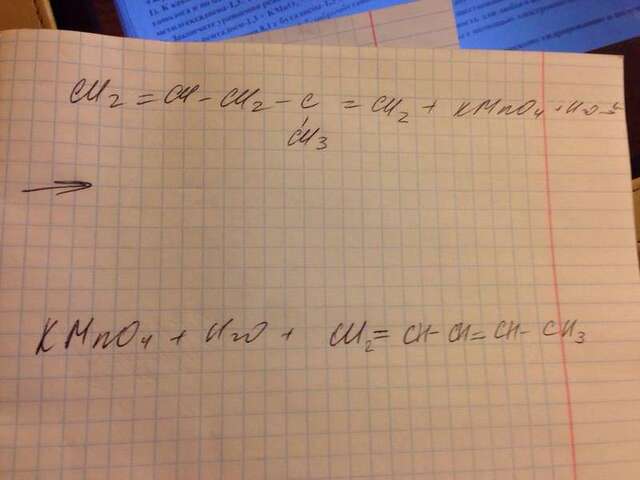 CH2 = CH - CH2 - C = CH2 + KMnO4 + H2O →
CH3
→
KMnO4 + H2O + CH2 = CH - CH = CH - CH3